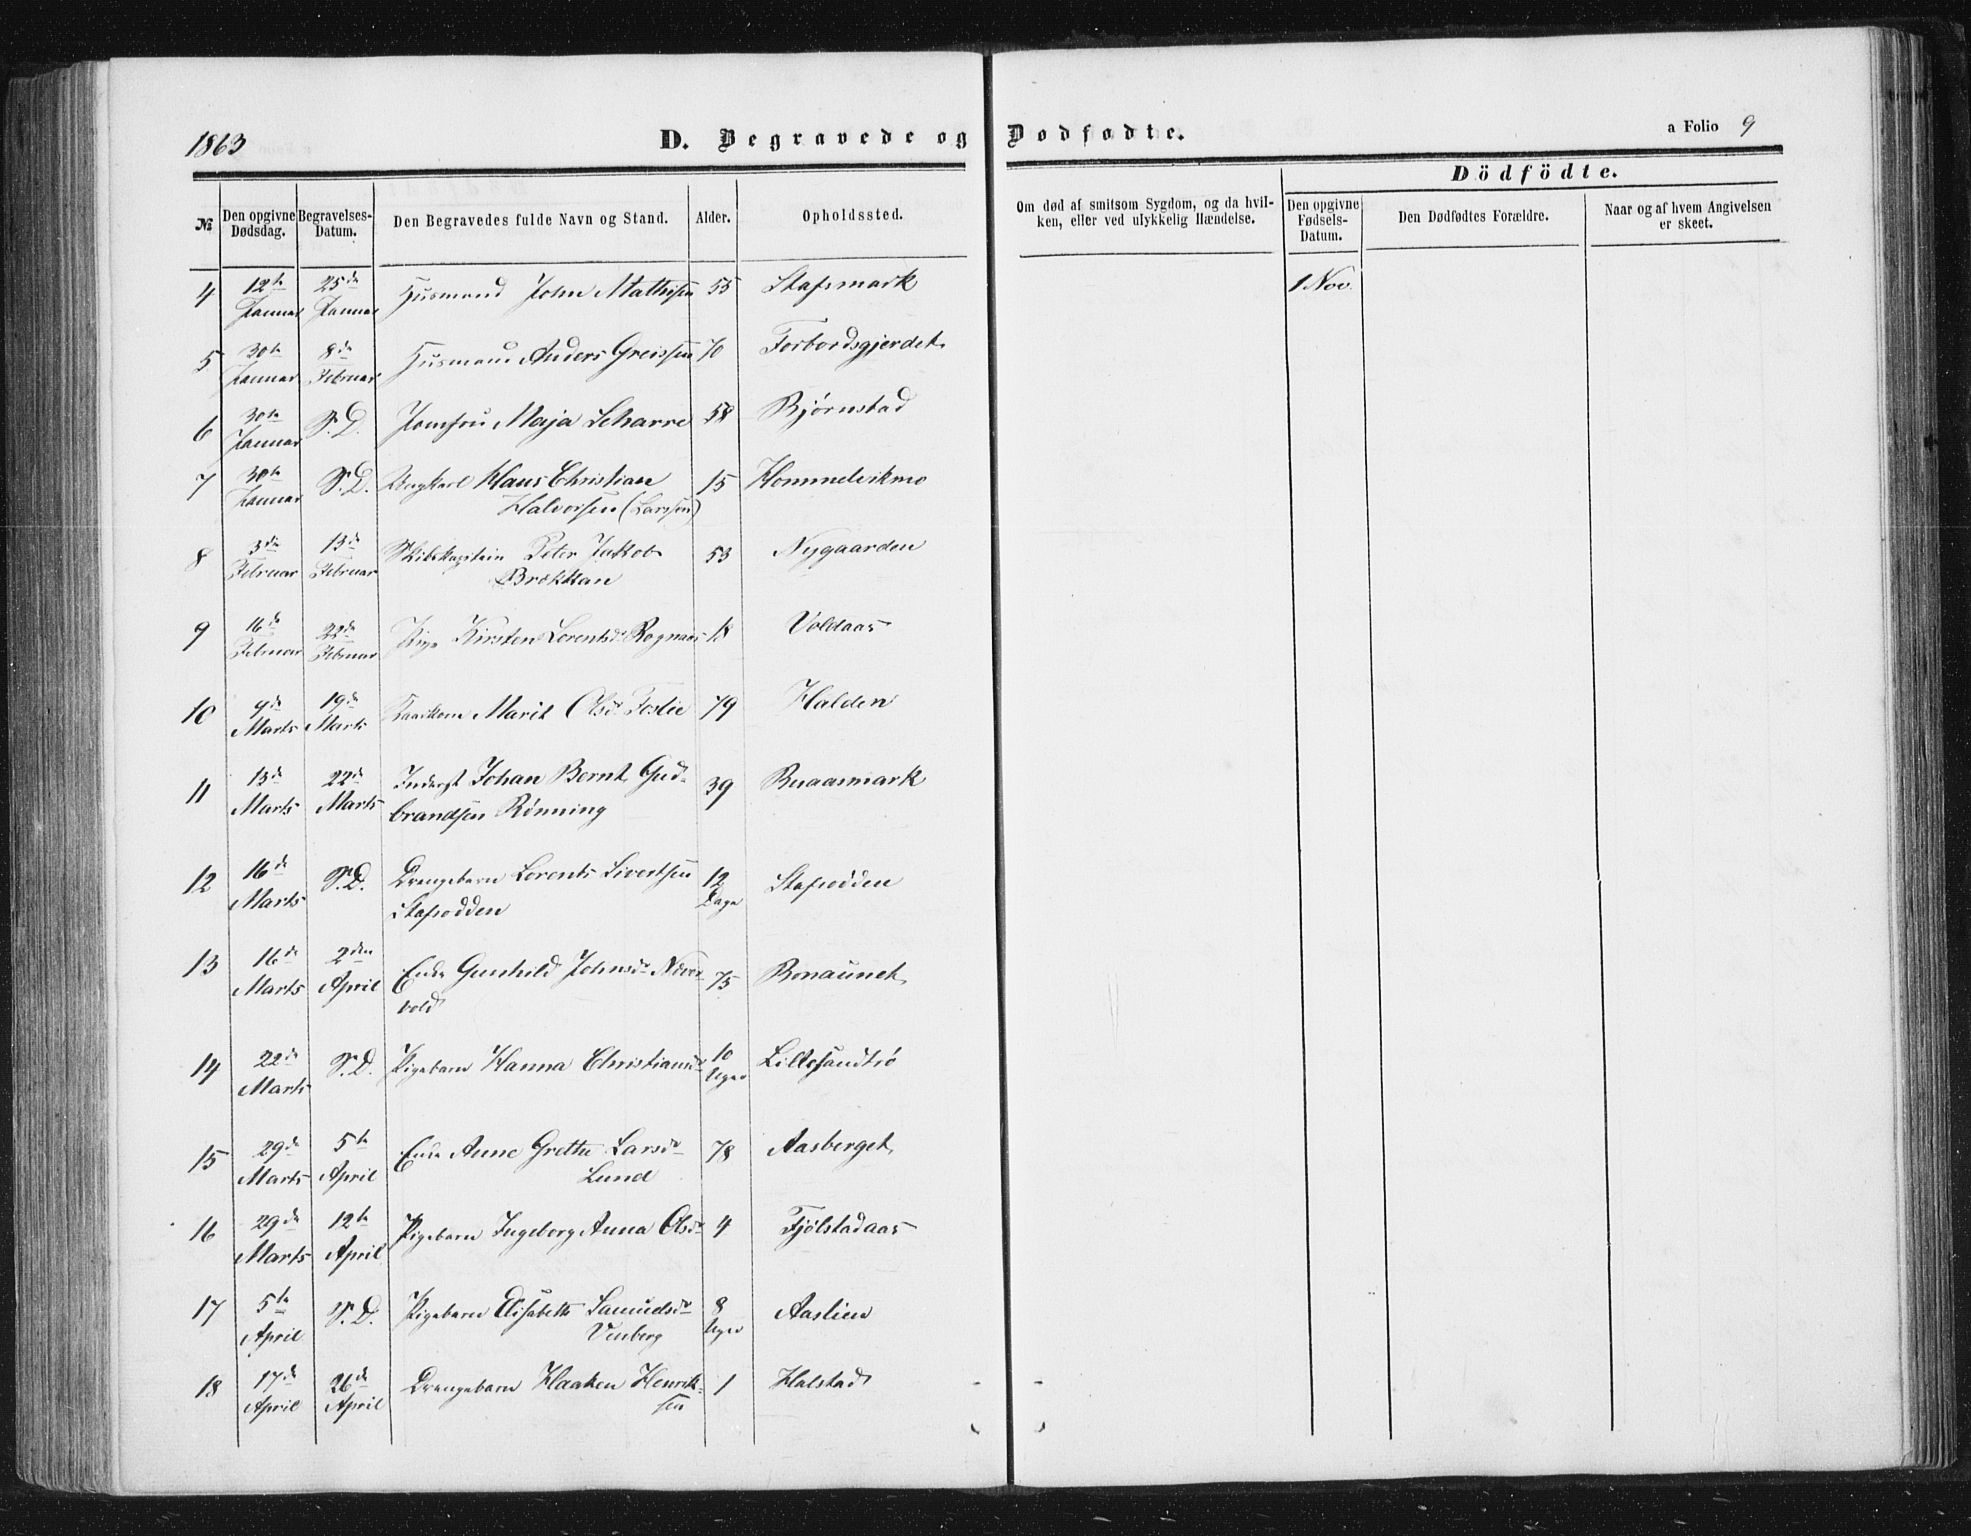 1863
D. Begravede og Dødfødte.
a Folio 9
Dödfödte.
№ Den opgivne Dødsdag. Begravelses-Datum. Den Begravedes fulde Navn og Stand. Alder. Opholdssted. Om død af smitsom Sygdom, og da hvilken, eller ved ulykkelig Hændelse. Den opgivne Fødsels-Datum. Den Dødfødtes Forældre. Naar og af hvem Angivelsen er skeet.
4 12te Januar 25de Januar Husmand John Mathisen 55 Stafsmark 1 Nov.
5 30te Januar 8de Februar Husmand Anders Greissen 70 Forbordsgjerdet
6 30te Januar S.D. Jomfru Maja Scharre 58 Bjørnstad
7 30te Januar S.D. Ungkarl Hans Christian 15 Hommelvikmo
Halvorsen (Larssen)
8 3die Februar 13de Februar Skibskaptein Peter Jakob 53 Nygaarden
Brækkan
9 16de Februar 22de Februar Pige Kirsten Lorentsdr Rognaas 18 Voldaas
10 9de Marts 19de Marts Marit Olsdr Foslie 79 Halden
11 13de Marts 22de Marts Inderst Johan Bernt Gud- 39 Ruaasmark
brandsen Rønning
12 16de Marts S.D. Drengebarn Lorents Sivertsen 12 Dage Stafsødden
Stafsødden
13 16de Marts 2den April Enke Gunhild Johnsdr Næver- 75 Bonaunet
vold
14 22de Marts S.D. Pigebarn Hanna Christiansdr 10 Uger Lillesandtrø
15 29de Marts 5te April Enke Anne Grethe Larsdr 78 Aasberget
Lund
16 29de Marts 12te April Pigebarn Ingeborg Anna Olsdr 4 Fjølstadaas
17 5te April S.D. Pigebarn Elisabeth Samuelsdr 8 Uger Aaslien
Venberg
18 17de April 26de April Drengebarn Haaken Henrik- 1 Halstad
sen